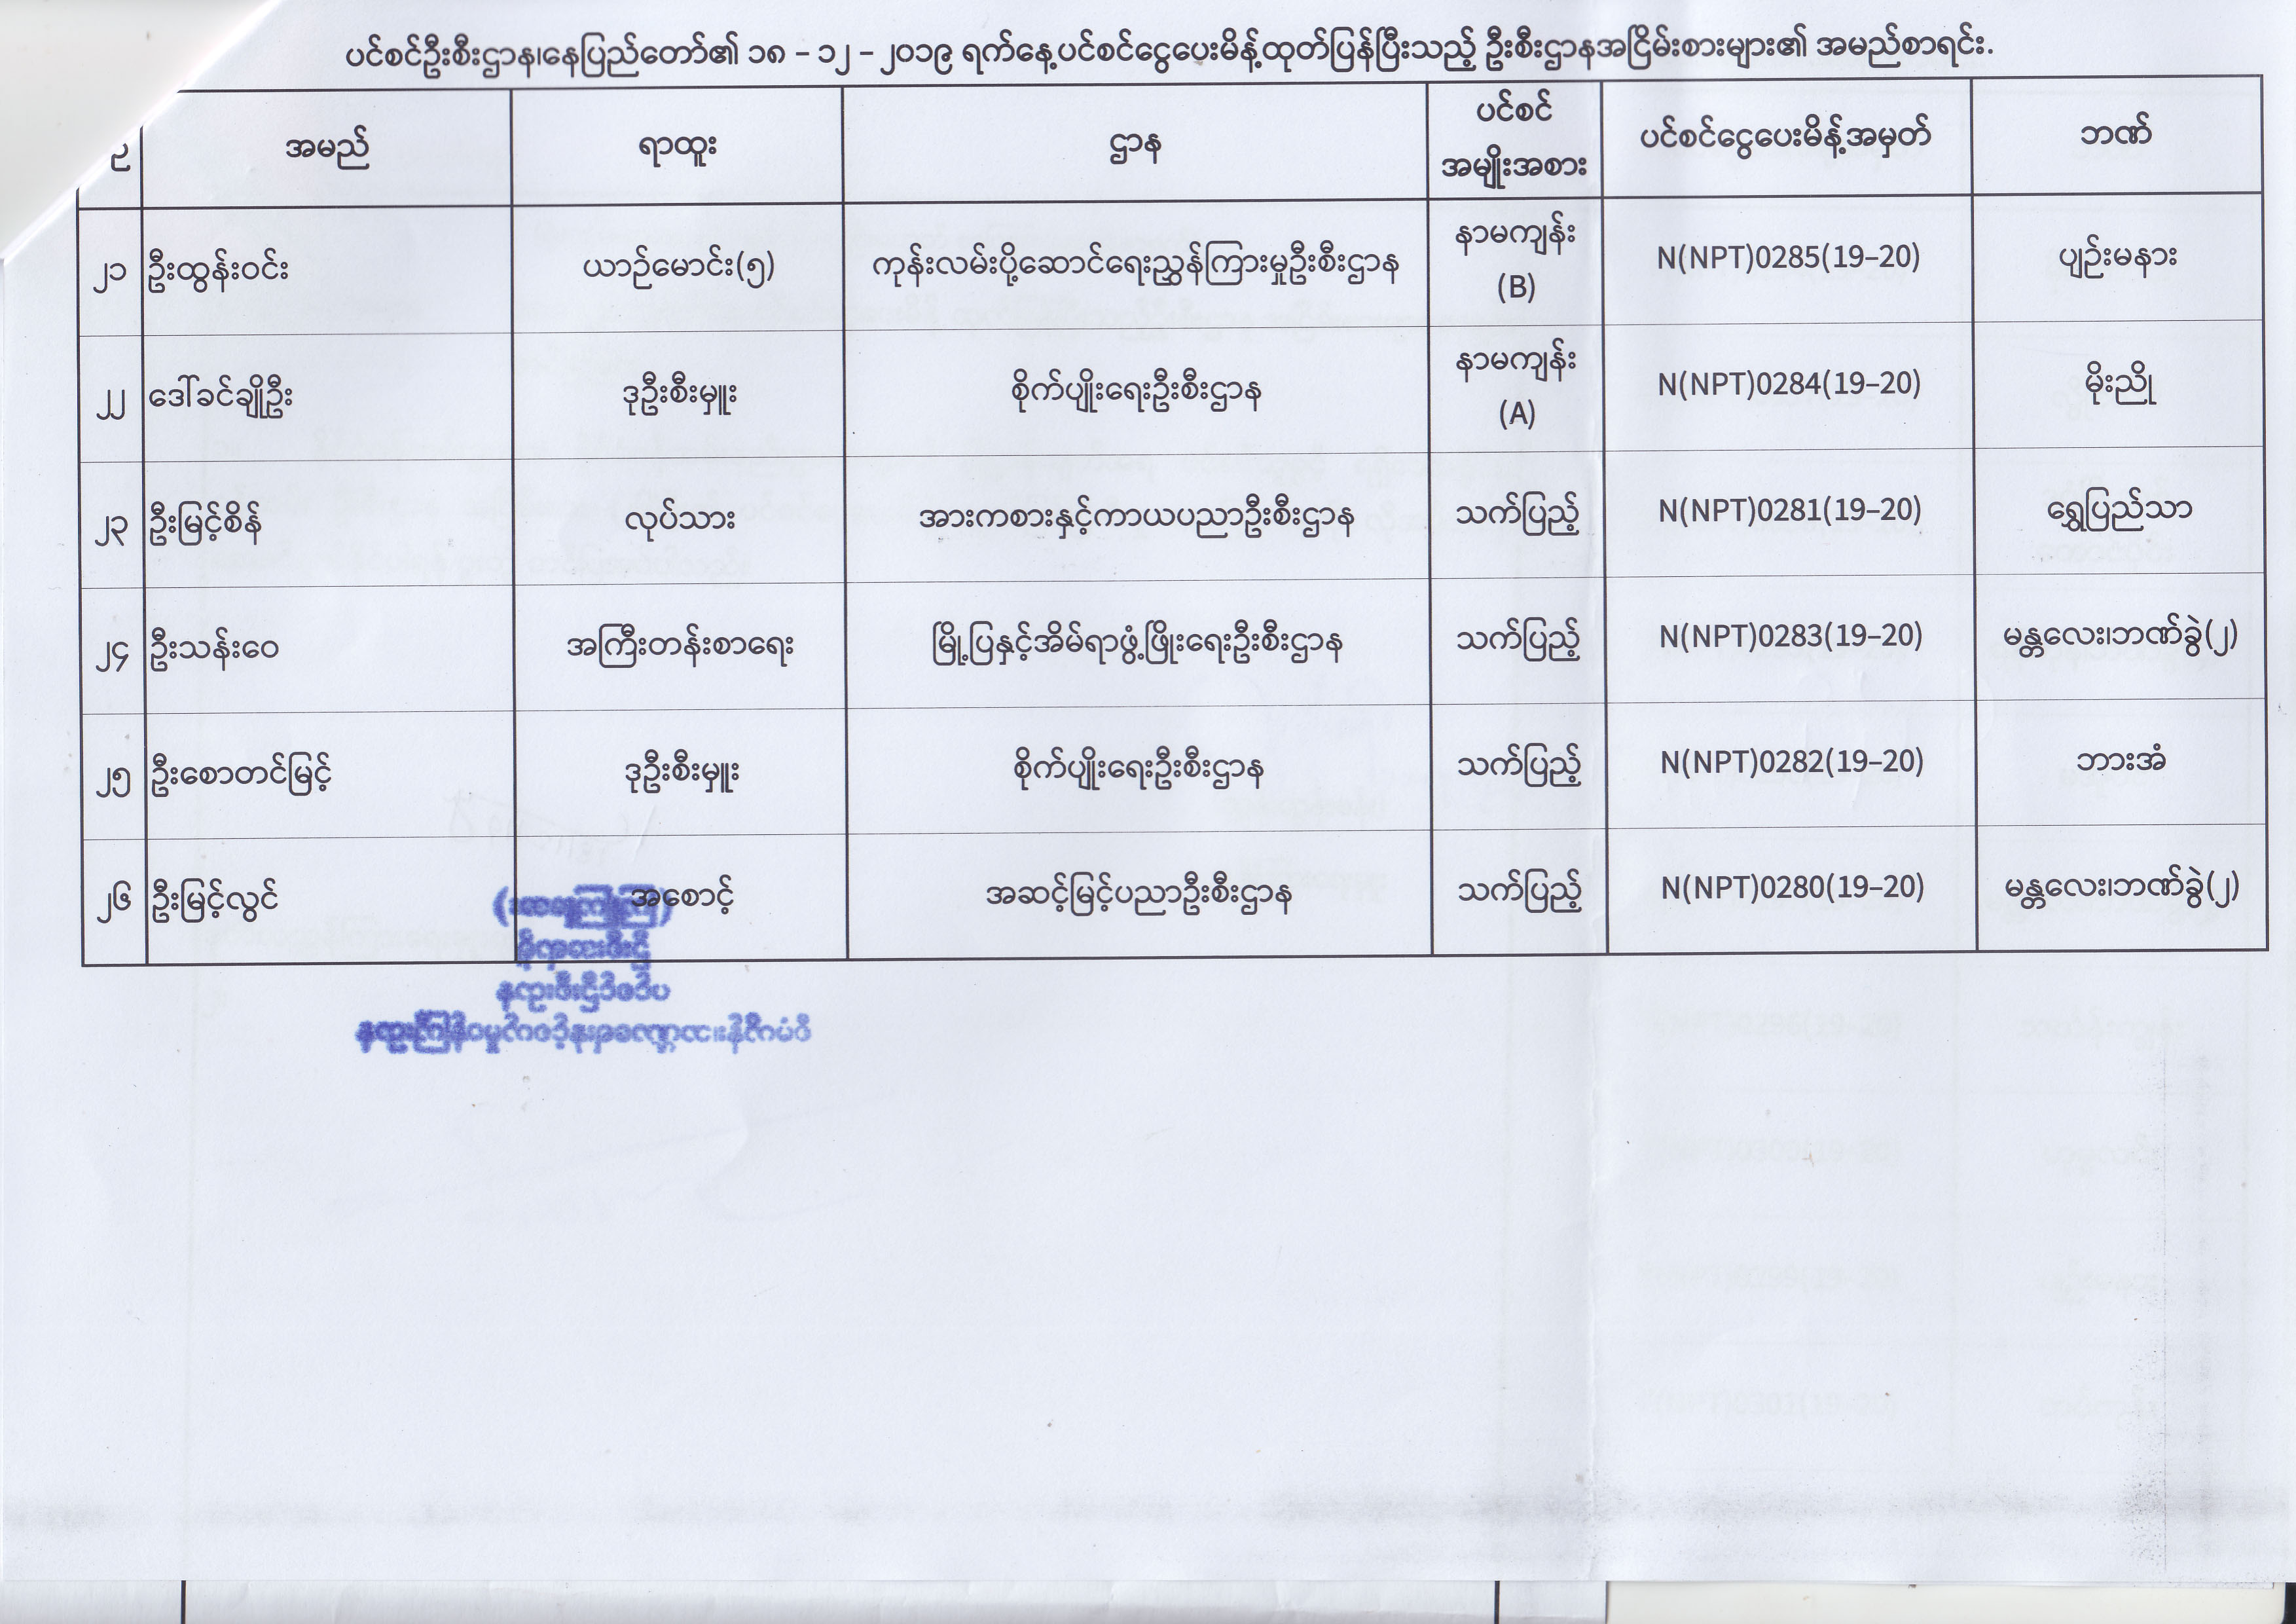 ပင်စင်ဦးစီးဌာန၊နေပြည်တော်၏ ၁၈ – ၁၂ – ၂၀၁၉ ရက်နေ့ပင်စင်ငွေပေးမိန့်ထုတ်ပြန်ပြီးသည့် ဦးစီးဌာနအငြိမ်းစားများ၏ အမည်စာရင်း.
အမည် ရာထူး ဌာန ပင်စင် အမျိုးအစား ပင်စင်ငွေပေးမိန့်အမှတ် ဘဏ်
၂၁ ဦးထွန်းဝင်း ယာဉ်မောင်း(၅) ကုန်းလမ်းပို့ဆောင်ရေးညွှန်ကြားမှုဦးစီးဌာန နာမကျန်း (B) N(NPT)0285(19–20) ပျဉ်းမနား
၂၂ ဒေါ်ခင်ချိုဦး ဒုဦးစီးမှူး စိုက်ပျိုးရေးဦးစီးဌာန နာမကျန်း (A) N(NPT)0284(19–20) မိုးညို
၂၃ ဦးမြင့်စိန် လုပ်သား အားကစားနှင့်ကာယပညာဦးစီးဌာန သက်ပြည့် N(NPT)0281(19–20) ရွှေပြည်သာ
၂၄ ဦးသန်းဝေ အကြီးတန်းစာရေး မြို့ပြနှင့်အိမ်ရာဖွံ့ဖြိုးရေးဦးစီးဌာန သက်ပြည့် N(NPT)0283(19–20) မန္တလေး၊ဘဏ်ခွဲ(၂)
၂၅ ဦးစောတင်မြင့် ဒုဦးစီးမှူး စိုက်ပျိုးရေးဦးစီးဌာန သက်ပြည့် N(NPT)0282(19–20) ဘားအံ
၂၆ ဦးမြင့်လွင် အစောင့် အဆင့်မြင့်ပညာဦးစီးဌာန သက်ပြည့် N(NPT)0280(19–20) မန္တလေး၊ဘဏ်ခွဲ(၂)